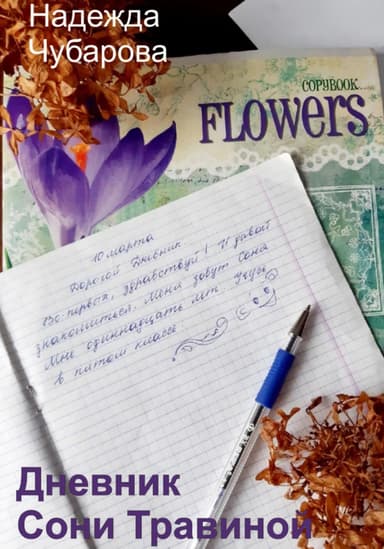 Надежда
Чубарова
COPYBOOK...
FLOWERS
10 марта
Дорогой Дневник.
Во-первых, здравствуй! И давай
знакомиться. Меня зовут Соня
Мне одиннадцать лет. Учусь
в пятом классе
Дневник
Сони Травиной